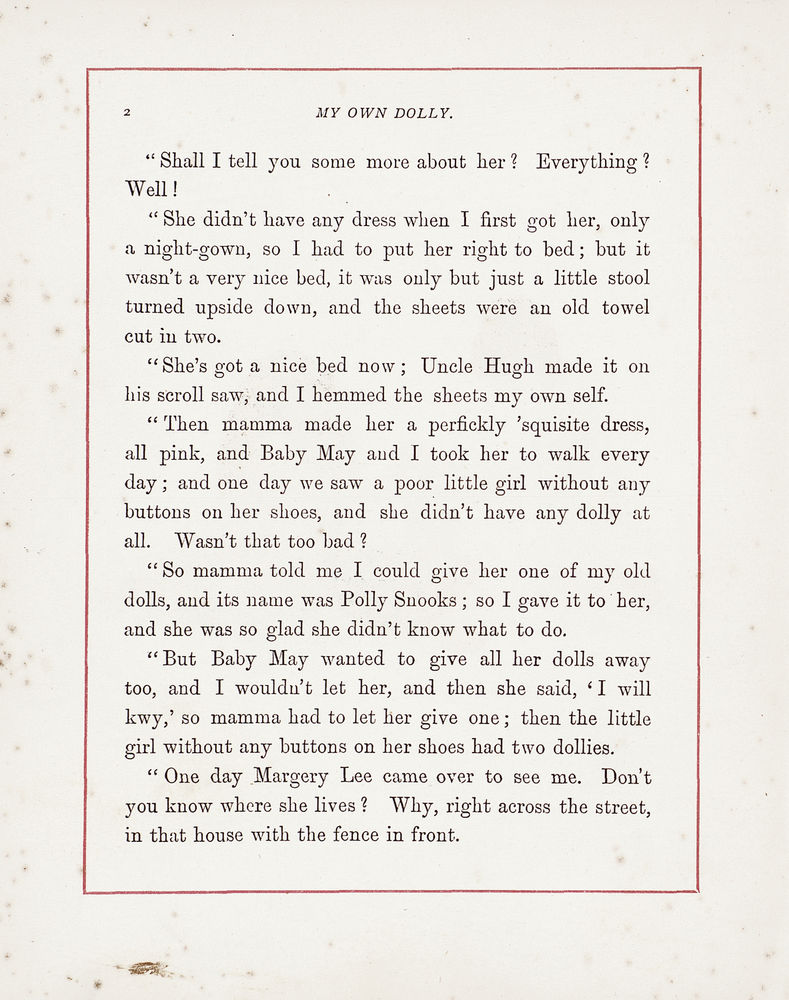 2 MY OWN DOLLY.
“Shall I tell you some more about her? Everything?
Well!
“She didn’t have any dress when I first got her, only
a night-gown, so I had to put her right to bed; but it
wasn’t a very nice bed, it was only but just a little stool
turned upside down, and the sheets were an old towel
cut in two.
“She’s got a nice bed now; Uncle Hugh made it on
his scroll saw, and I hemmed the sheets my own self.
“Then mamma made her a perfickly ’squisite dress,
all pink, and Baby May and I took her to walk every
day; and one day we saw a poor little girl without any
buttons on her shoes, and she didn’t have any dolly at
all. Wasn’t that too bad?
“So mamma told me I could give her one of my old
dolls, and its name was Polly Snooks; so I gave it to her,
and she was so glad she didn’t know what to do.
“But Baby May wanted to give all her dolls away
too, and I wouldn’t let her, and then she said, ‘I will
kwy,’ so mamma had to let her give one; then the little
girl without any buttons on her shoes had two dollies.
“One day Margery Lee came over to see me. Don’t
you know where she lives? Why, right across the street,
in that house with the fence in front.